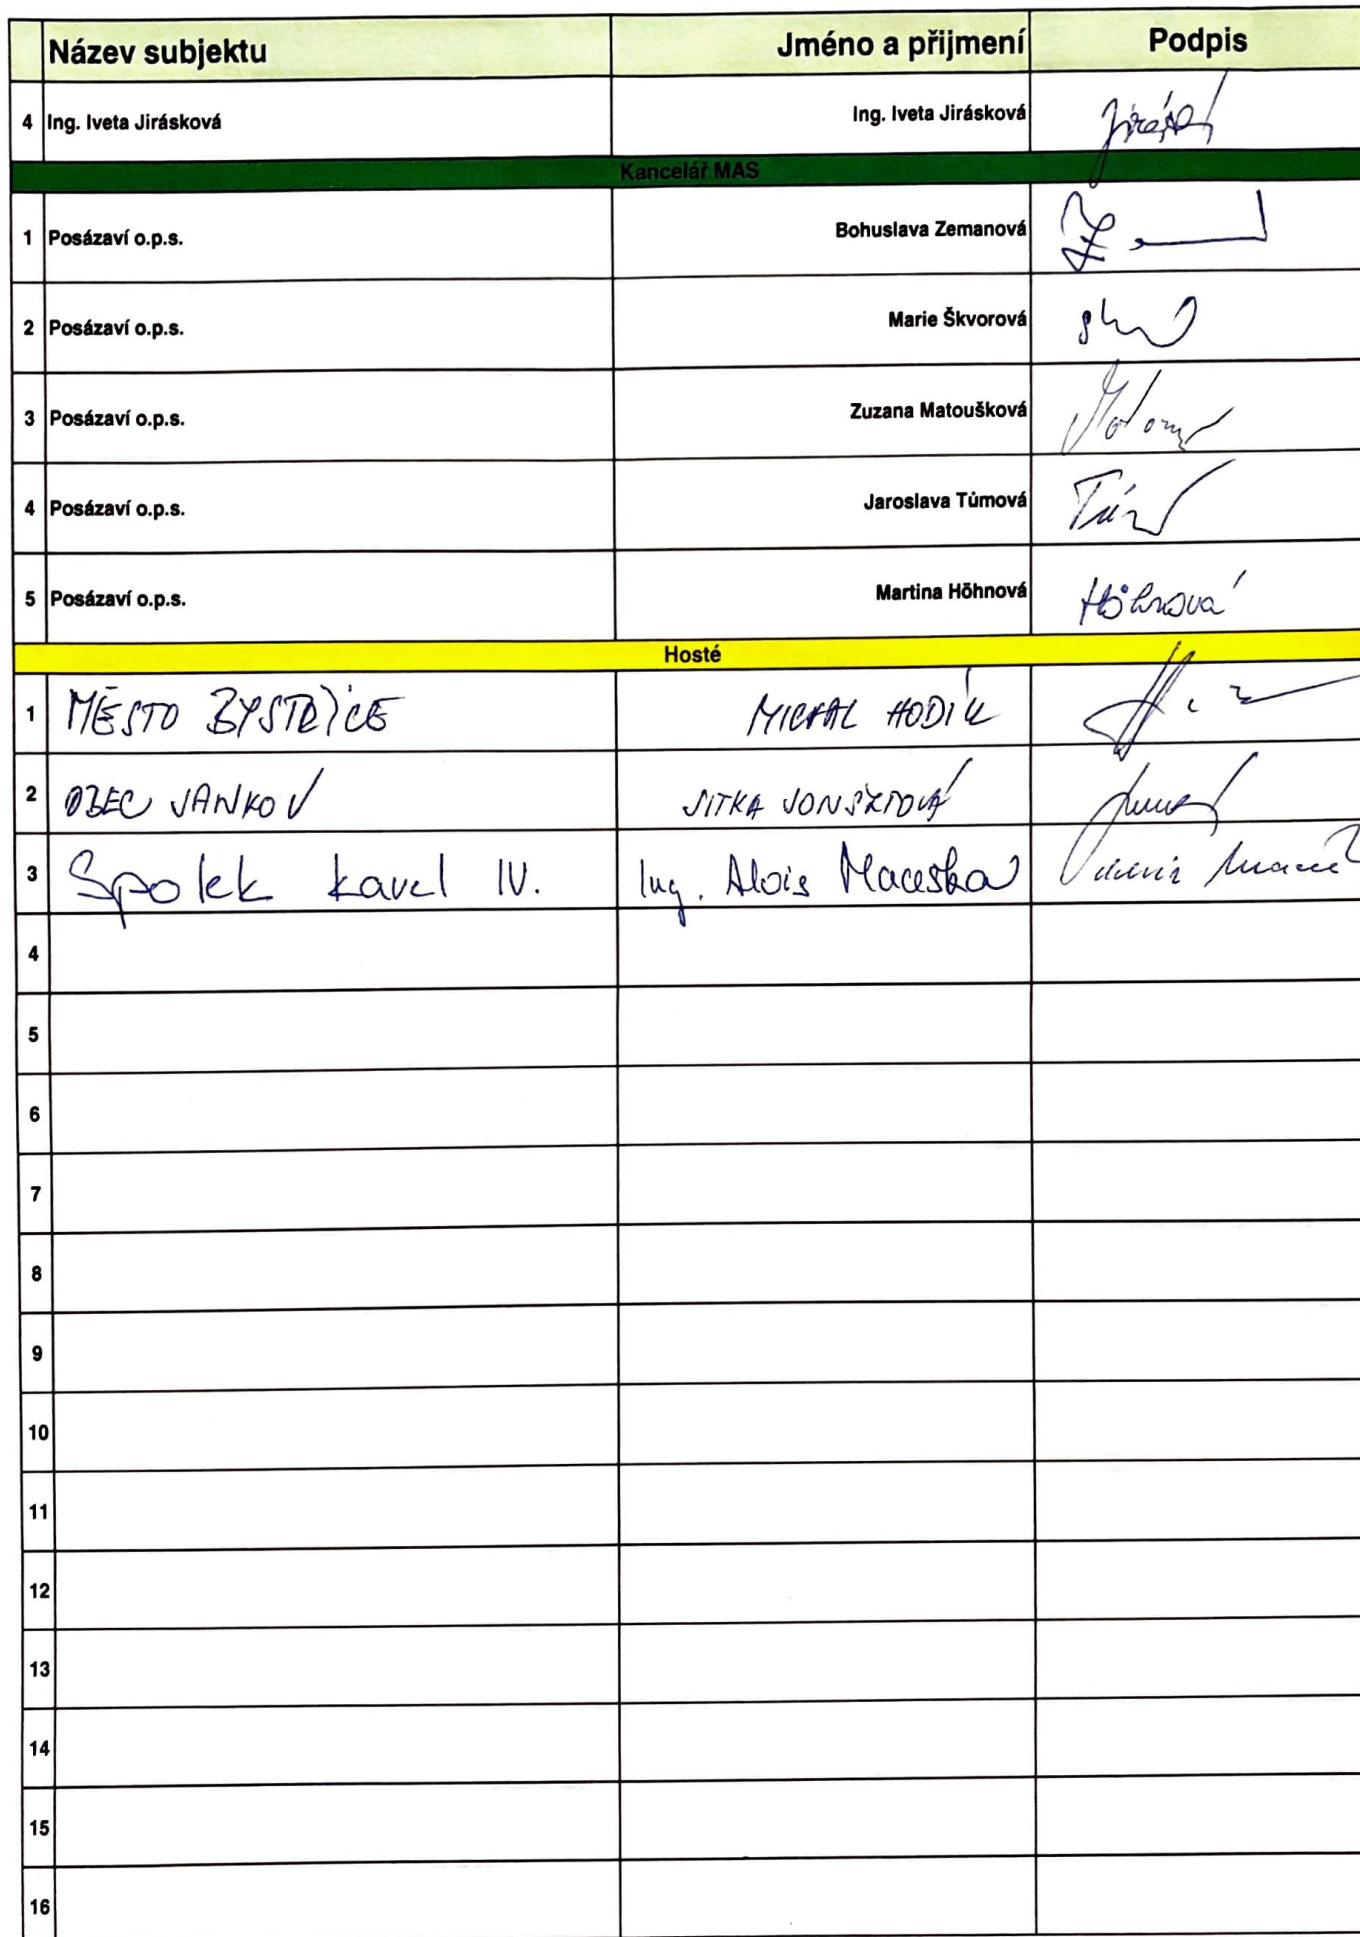 Název subjektu Jméno a přijmení Podpis
4 Ing. Iveta Jirásková Ing. Iveta Jirásková
Kancelář MAS
1 Posázaví o.p.s. Bohuslava Zemanová
2 Posázaví o.p.s. Marie Škvorová
3 Posázaví o.p.s. Zuzana Matoušková
4 Posázaví o.p.s. Jaroslava Tůmová
5 Posázaví o.p.s. Martina Höhnová Höhnová
Hosté
1 MĚSTO BYSTŘICE MICHAL HODÍK
2 OBEC JANKOV JITKA
3 Spolek kavel IV. Ing. Alois Maceška
4
5
6
7
8
9
10
11
12
13
14
15
16